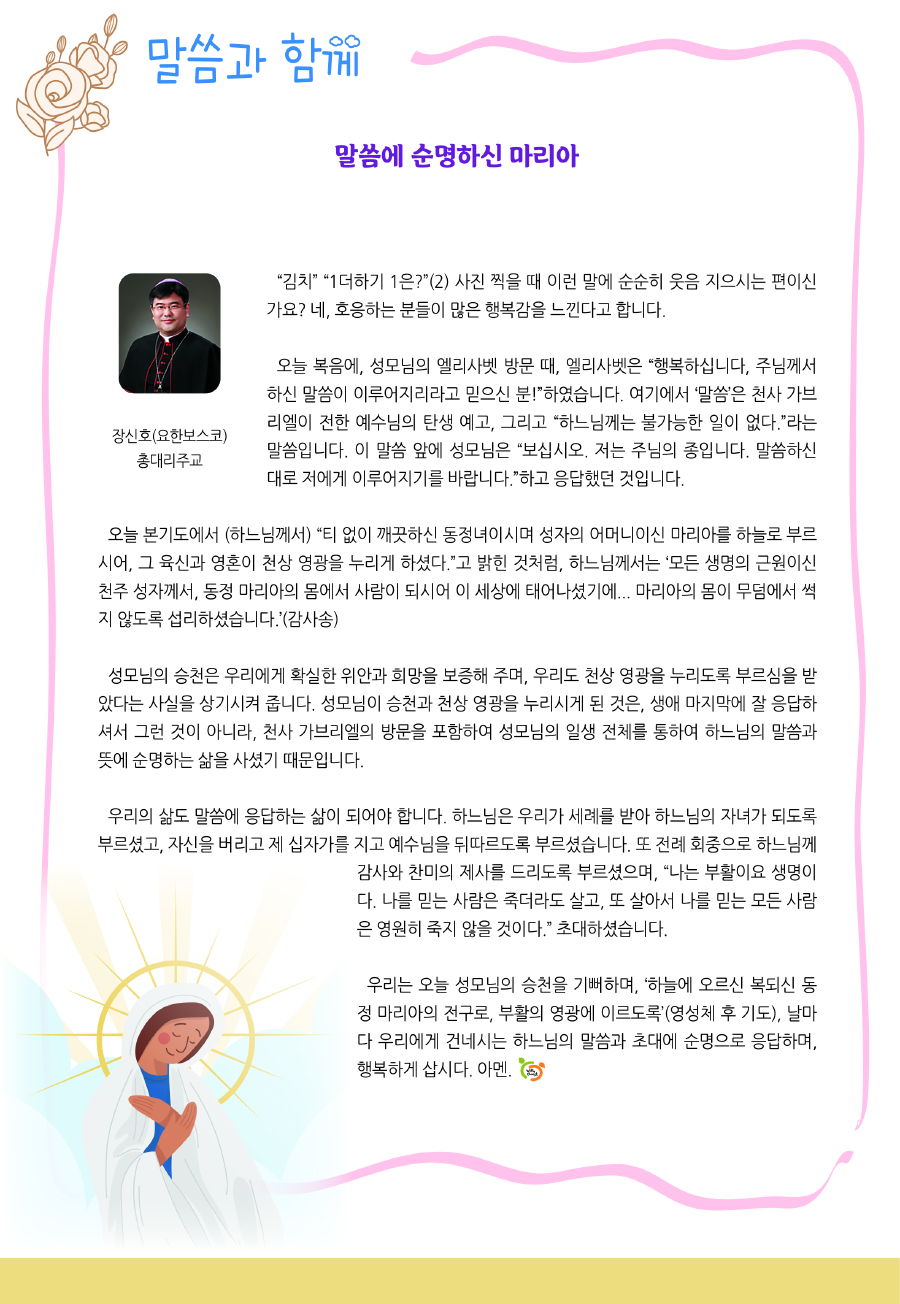 말씀과 함께
말씀에 순명하신 마리아
“김치” “1더하기 1은?”(2) 사진 찍을 때 이런 말에 순순히 웃음 지으시는 편이신
가요? 네, 호응하는 분들이 많은 행복감을 느낀다고 합니다.
오늘 복음에, 성모님의 엘리사벳 방문 때, 엘리사벳은 “행복하십니다, 주님께서
하신 말씀이 이루어지리라고 믿으신 분!”하였습니다. 여기에서 ‘말씀’은 천사 가브
리엘이 전한 예수님의 탄생 예고, 그리고 “하느님께는 불가능한 일이 없다.”라는
말씀입니다. 이 말씀 앞에 성모님은 “보십시오. 저는 주님의 종입니다. 말씀하신
대로 저에게 이루어지기를 바랍니다.”하고 응답했던 것입니다.
장신호(요한보스코)
총대리주교
오늘 본기도에서 (하느님께서) “티 없이 깨끗하신 동정녀이시며 성자의 어머니이신 마리아를 하늘로 부르
시어, 그 육신과 영혼이 천상 영광을 누리게 하셨다.”고 밝힌 것처럼, 하느님께서는 ‘모든 생명의 근원이신
천주 성자께서, 동정 마리아의 몸에서 사람이 되시어 이 세상에 태어나셨기에... 마리아의 몸이 무덤에서 썩
지 않도록 섭리하셨습니다.’(감사송)
성모님의 승천은 우리에게 확실한 위안과 희망을 보증해 주며, 우리도 천상 영광을 누리도록 부르심을 받
았다는 사실을 상기시켜 줍니다. 성모님이 승천과 천상 영광을 누리시게 된 것은, 생애 마지막에 잘 응답하
셔서 그런 것이 아니라, 천사 가브리엘의 방문을 포함하여 성모님의 일생 전체를 통하여 하느님의 말씀과
뜻에 순명하는 삶을 사셨기 때문입니다.
우리의 삶도 말씀에 응답하는 삶이 되어야 합니다. 하느님은 우리가 세례를 받아 하느님의 자녀가 되도록
부르셨고, 자신을 버리고 제 십자가를 지고 예수님을 뒤따르도록 부르셨습니다. 또 전례 회중으로 하느님께
감사와 찬미의 제사를 드리도록 부르셨으며, “나는 부활이요 생명이
다. 나를 믿는 사람은 죽더라도 살고, 또 살아서 나를 믿는 모든 사람
은 영원히 죽지 않을 것이다.” 초대하셨습니다.
우리는 오늘 성모님의 승천을 기뻐하며, ‘하늘에 오르신 복되신 동
정 마리아의 전구로, 부활의 영광에 이르도록’(영성체 후 기도), 날마
다 우리에게 건네시는 하느님의 말씀과 초대에 순명으로 응답하며,
행복하게 삽시다. 아멘.